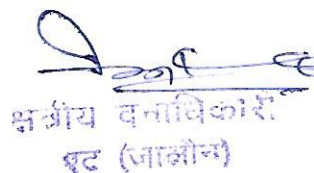 क्षेत्रीय वनाधिकारी
एट (जालौन)